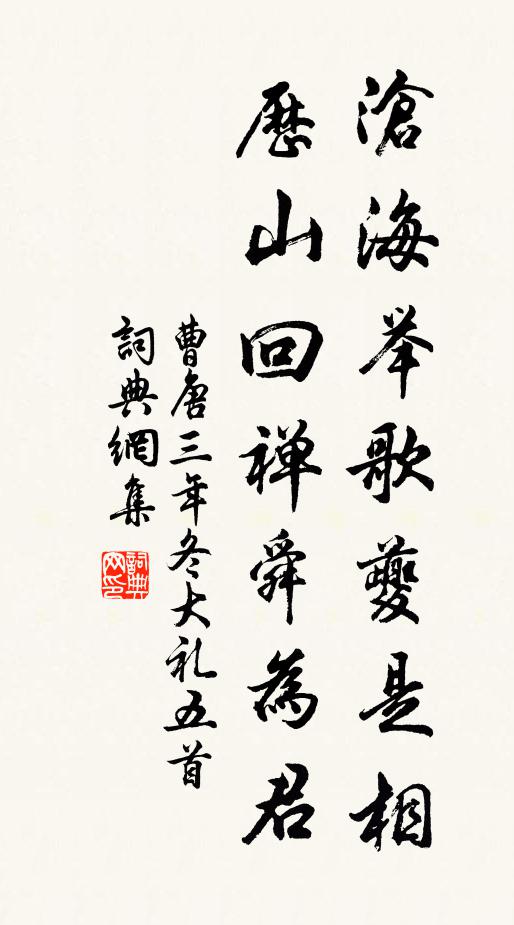 滄海举歌夔是相
歷山回禅舜為君
曹唐三年冬大礼五首
詞典網集
詞典网印